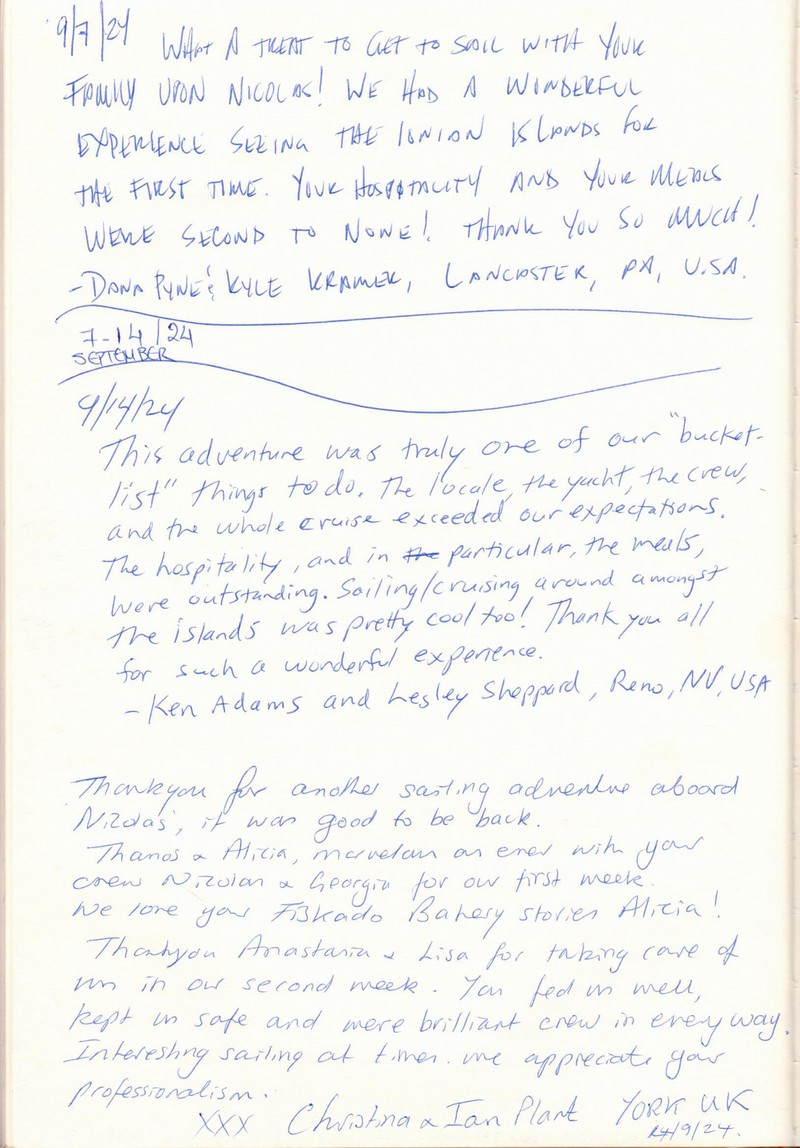 9/7/24 WHAT A TREAT TO GET TO SAIL WITH YOUR
FAMILY UPON NICOLAS! WE HAD A WONDERFUL
EXPERIENCE SEEING THE IONIAN ISLANDS FOR
THE FIRST TIME. YOUR HOSPITALITY AND YOUR MEALS
WERE SECOND TO NONE! THANK YOU SO MUCH!
-DANA PYNE & KYLE KRAMER, LANCASTER, PA, U.S.A.
7-14/24
SEPTEMBER
9/14/24
This adventure was truly one of our "bucket-
list" things to do. The locale, the yacht, the crew,
and the whole cruise exceeded our expectations.
The hospitality, and in the particular, the meals,
were outstanding. Sailing/cruising around amongst
the islands was pretty cool too! Thank you all
for such a wonderful experience.
- Ken Adams and Lesley Sheppard, Reno, NV, USA
Thankyou for another sailing adventure aboard
'Nikolas', it was good to be back.
Thanos & Alicia, marvelous as ever with your
crew Nikolas & Georgia for our first week.
We love your Fiskado Bakery stories Alicia!
Thankyou Anastasia & Lisa for taking care of
us in our second week. You fed us well,
kept us safe and were brilliant crew in every way.
Interesting sailing at times. we appreciate your
professionalism.
XXX Christina & Ian Plant YORK UK
14/9/24.